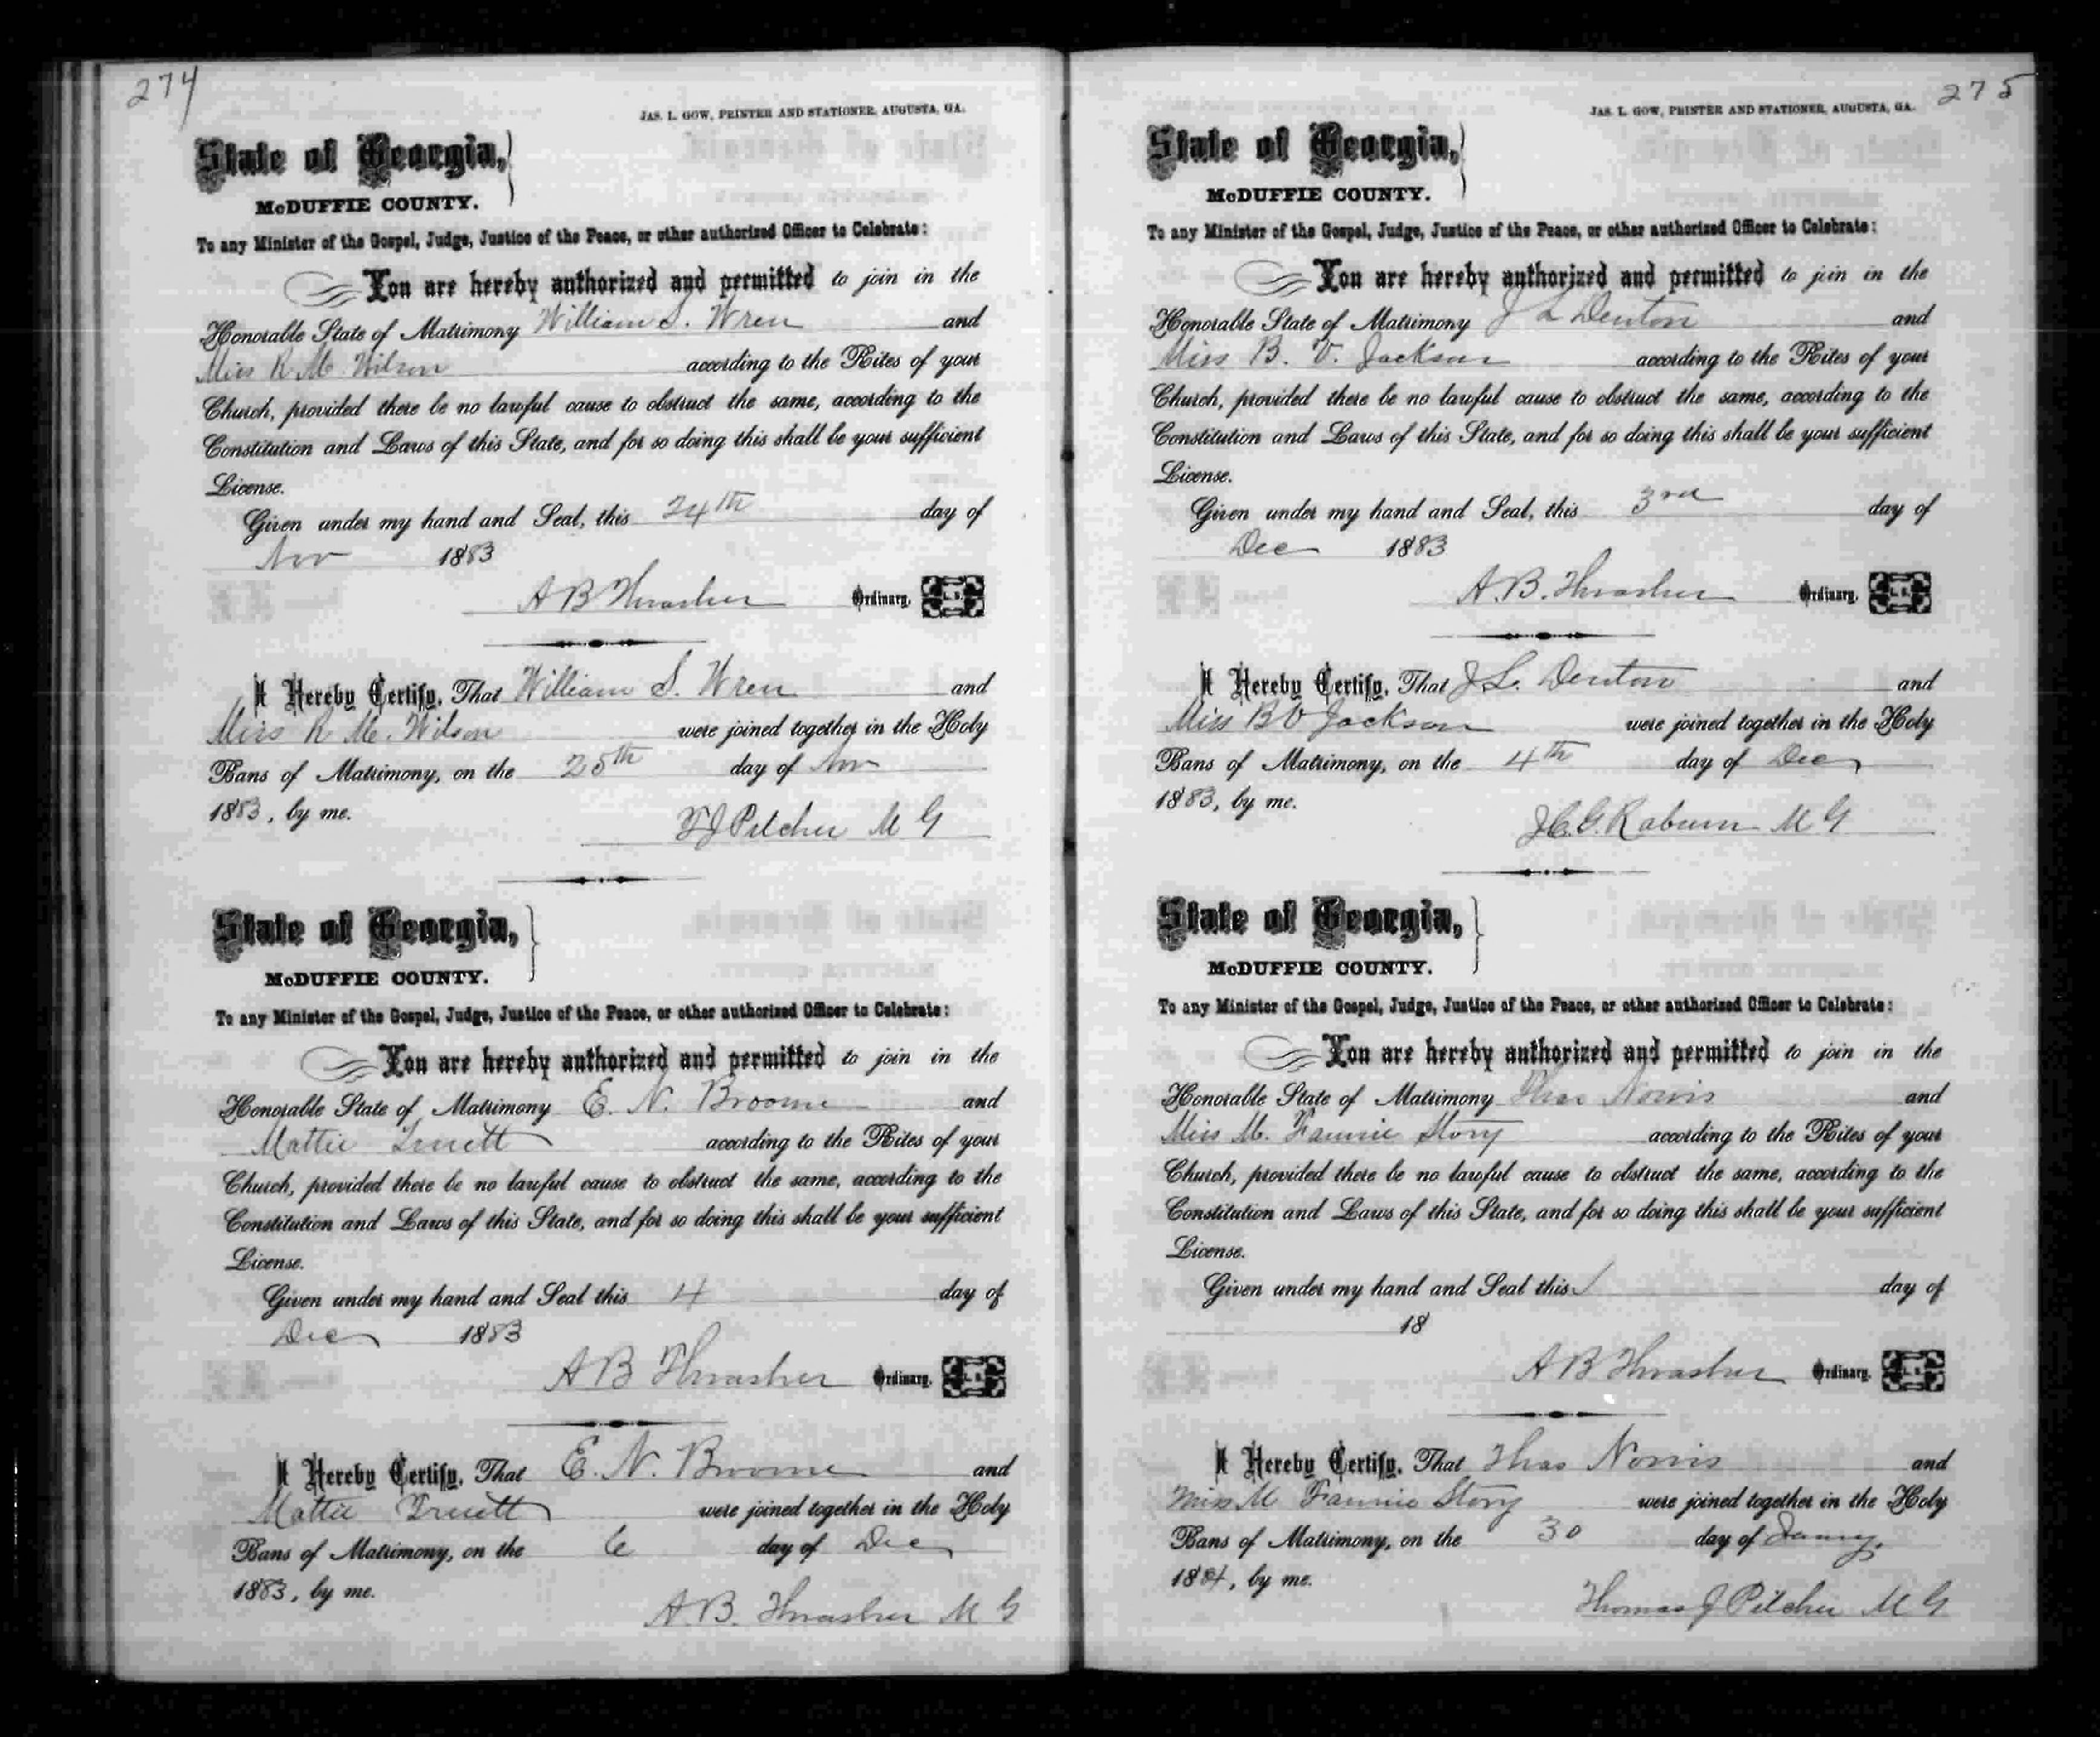 274
JAS. L. GOW, PRINTER AND STATIONER, AUGUSTA, GA.
State of Georgia,
McDUFFIE COUNTY.
To any Minister of the Gospel, Judge, Justice of the Peace, or other authorized Officer to Celebrate:
You are hereby authorized and permitted to join in the
Honorable State of Matrimony William S. Wren and
Miss R. M. Wilson according to the Rites of your
Church, provided there be no lawful cause to obstruct the same, according to the
Constitution and Laws of this State, and for so doing this shall be your sufficient
License.
Given under my hand and Seal, this 24th day of
Nov 1883
A B Thrasher Ordinary. L. S.
I Hereby Certify, That William S. Wren and
Miss R. M. Wilson were joined together in the Holy
Bans of Matrimony, on the 25th day of Nov
1883, by me.
T J Pilcher M G
State of Georgia,
McDUFFIE COUNTY.
To any Minister of the Gospel, Judge, Justice of the Peace, or other authorized Officer to Celebrate:
You are hereby authorized and permitted to join in the
Honorable State of Matrimony E. N. Broome and
Mattie Truett according to the Rites of your
Church, provided there be no lawful cause to obstruct the same, according to the
Constitution and Laws of this State, and for so doing this shall be your sufficient
License.
Given under my hand and Seal this 4 day of
Dec 1883
A B Thrasher Ordinary. L. S.
I Hereby Certify, That E. N. Broome and
Mattie Truett were joined together in the Holy
Bans of Matrimony, on the 6 day of Dec
1883, by me.
A. B. Thrasher M G
275
JAS. L. GOW, PRINTER AND STATIONER, AUGUSTA, GA.
State of Georgia,
McDUFFIE COUNTY.
To any Minister of the Gospel, Judge, Justice of the Peace, or other authorized Officer to Celebrate:
You are hereby authorized and permitted to join in the
Honorable State of Matrimony J L Denton and
Miss B. V. Jackson according to the Rites of your
Church, provided there be no lawful cause to obstruct the same, according to the
Constitution and Laws of this State, and for so doing this shall be your sufficient
License.
Given under my hand and Seal, this 3rd day of
Dec 1883
A. B. Thrasher Ordinary. L. S.
I Hereby Certify, That J L. Denton and
Miss B V Jackson were joined together in the Holy
Bans of Matrimony, on the 4th day of Dec
1883, by me.
J. C. G. Rabun M G
State of Georgia,
McDUFFIE COUNTY.
To any Minister of the Gospel, Judge, Justice of the Peace, or other authorized Officer to Celebrate:
You are hereby authorized and permitted to join in the
Honorable State of Matrimony Thos Norris and
Miss M. Fannie Story according to the Rites of your
Church, provided there be no lawful cause to obstruct the same, according to the
Constitution and Laws of this State, and for so doing this shall be your sufficient
License.
Given under my hand and Seal this day of
18
A B Thrasher Ordinary. L. S.
I Hereby Certify, That Thos Norris and
Miss M Fannie Story were joined together in the Holy
Bans of Matrimony, on the 30 day of
1884, by me.
Thomas J Pilcher M G